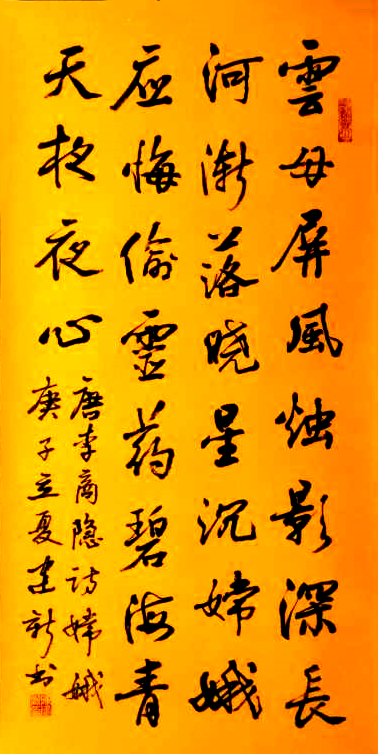 雲母屏風烛影深長
河渐落晓星沉嫦娥
应悔偷靈药碧海青
天夜夜心
唐李商隐诗嫦娥
庚子立夏建新书